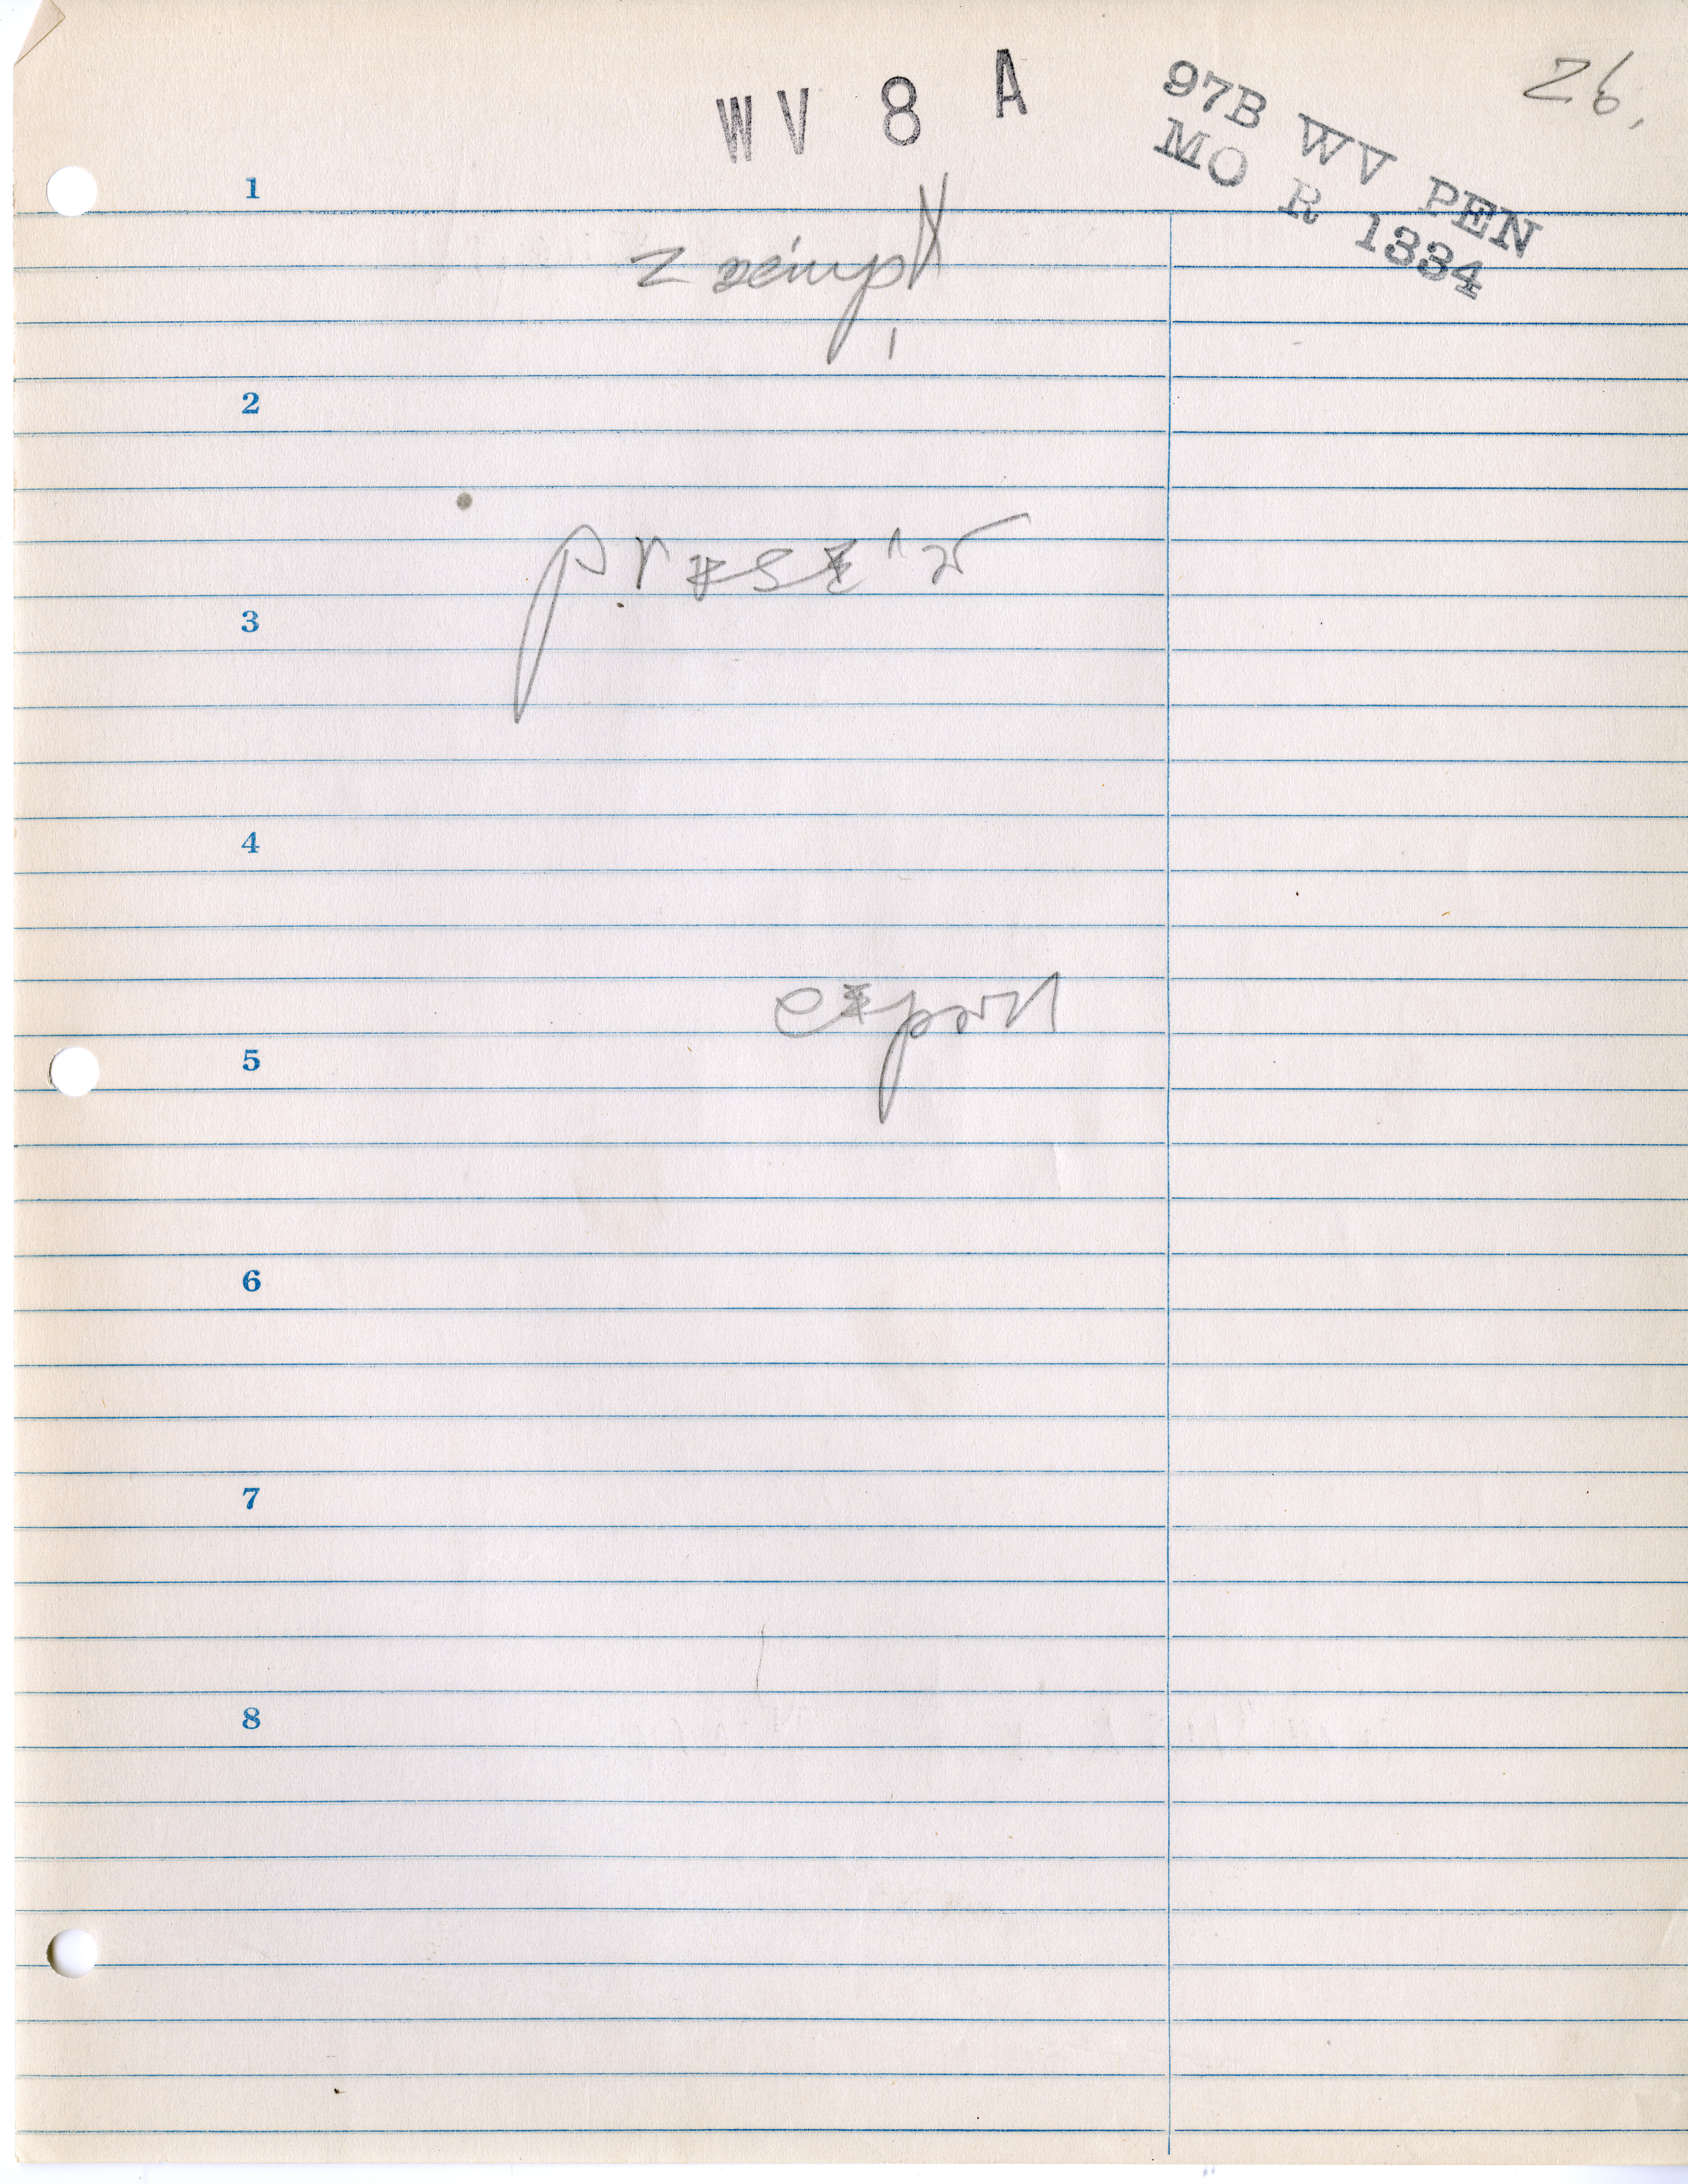 WV 8 A
97B WV PEN
MO R 1334
26.
1
2
3
4
5
export
6
7
8